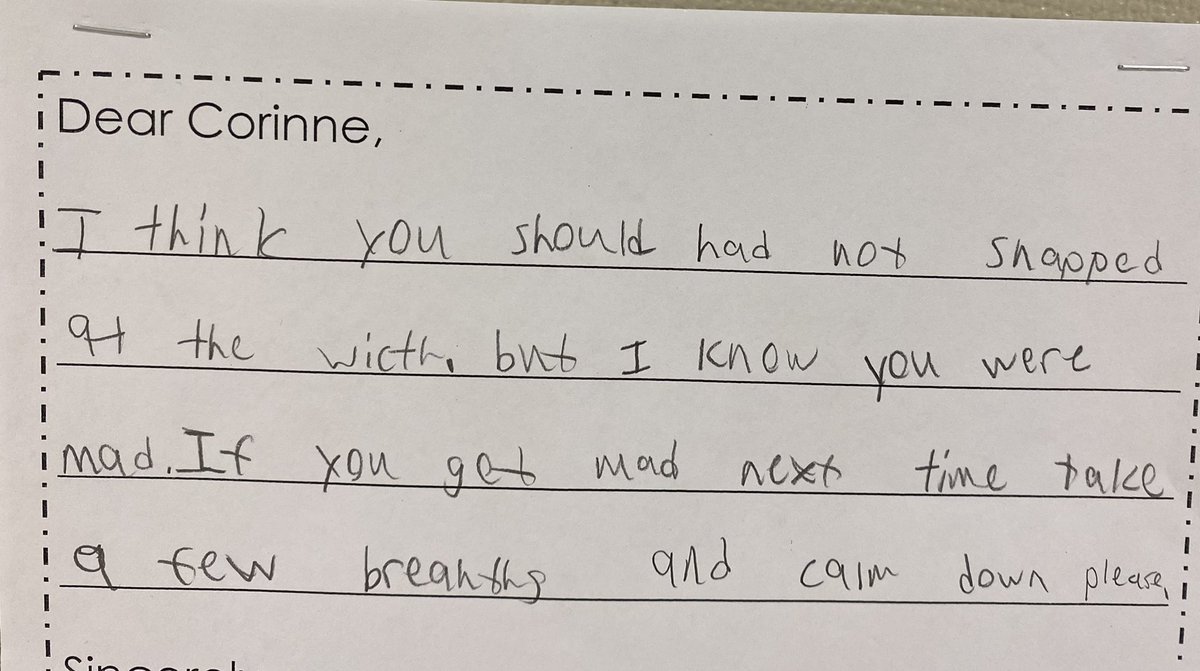 Dear Corinne,
I think you should had not snapped
at the wicth. but I know you were
mad. If you get mad next time take
a few breanths and calm down please.